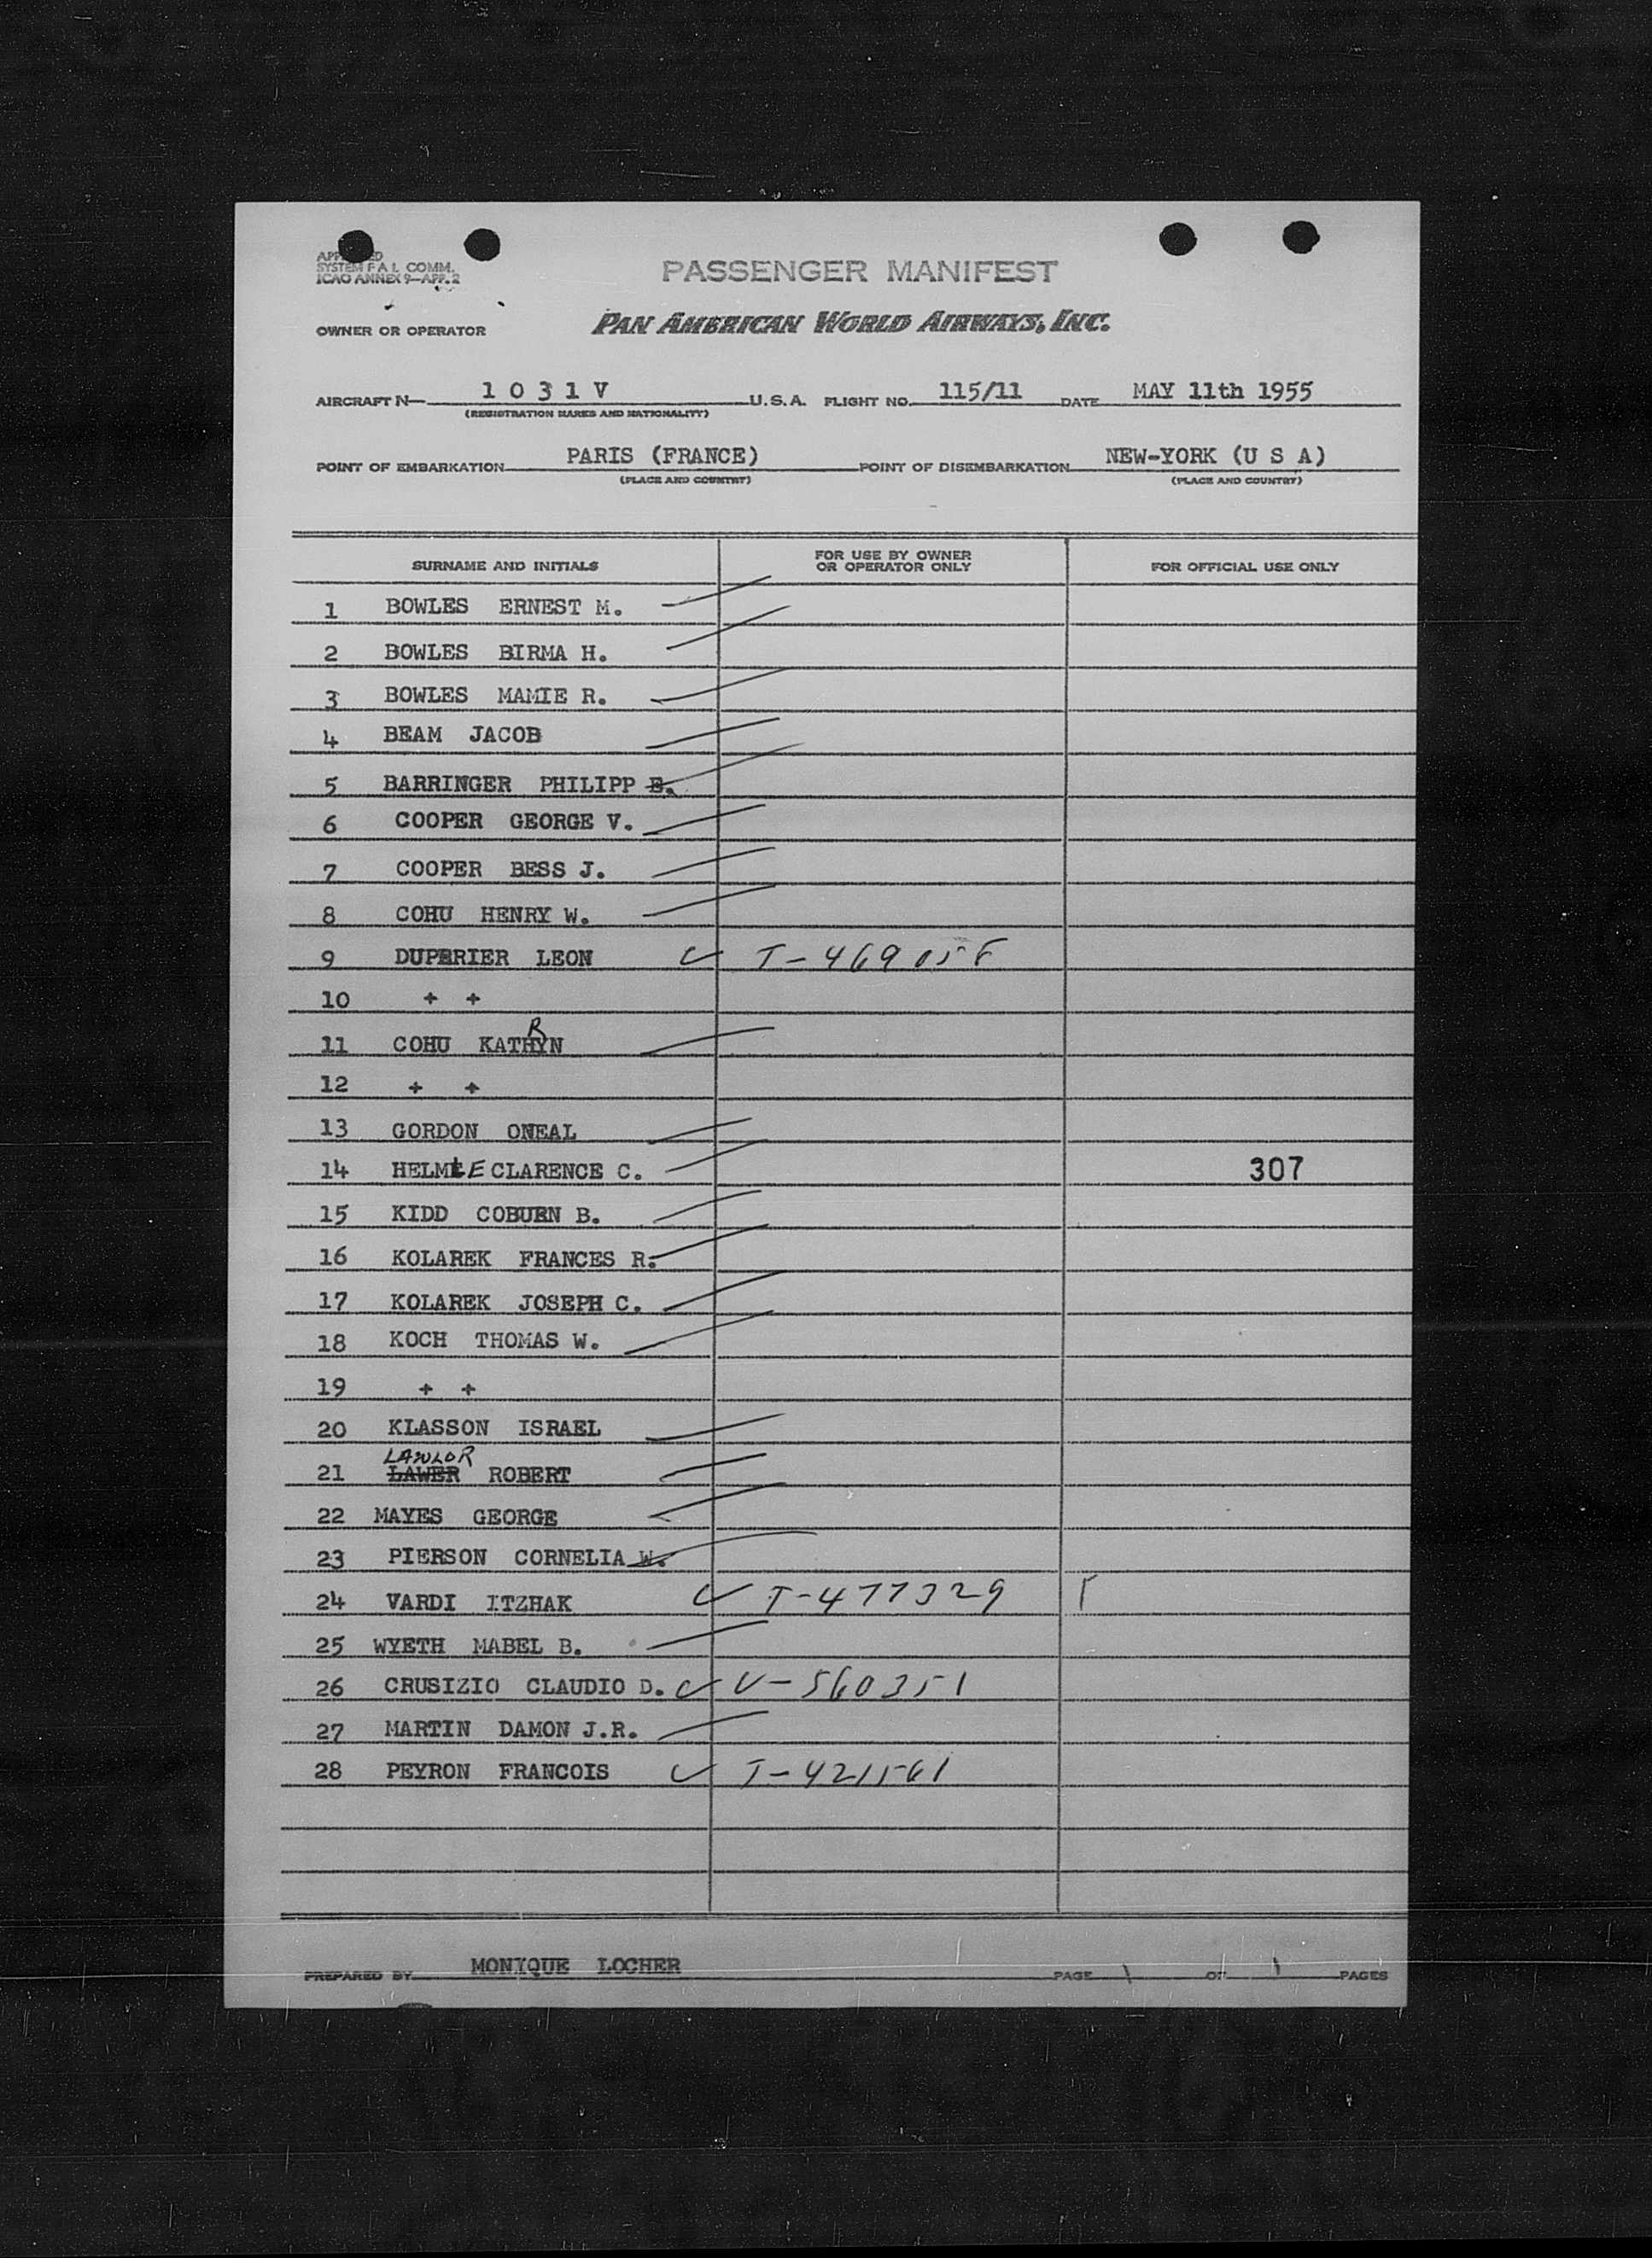 APPROVED
SYSTEM F A L COMM.
ICAO ANNEX 9-APP. 2
PASSENGER MANIFEST
OWNER OR OPERATOR PAN AMERICAN WORLD AIRWAYS, INC.
AIRCRAFT N- 1 0 3 1 V U.S.A. FLIGHT NO. 115/11 DATE MAY 11th 1955
(REGISTRATION MARKS AND NATIONALITY)
POINT OF EMBARKATION PARIS (FRANCE) POINT OF DISEMBARKATION NEW-YORK (U S A)
(PLACE AND COUNTRY) (PLACE AND COUNTRY)
SURNAME AND INITIALS FOR USE BY OWNER OR OPERATOR ONLY FOR OFFICIAL USE ONLY
1 BOWLES ERNEST M.
2 BOWLES BIRMA H.
3 BOWLES MAMIE R.
4 BEAM JACOB
5 BARRINGER PHILIPP E.
6 COOPER GEORGE V.
7 COOPER BESS J.
8 COHU HENRY W.
9 DUPERIER LEON ✓ T-469058
10 + +
11 COHU KATHRYN
12 + +
13 GORDON ONEAL
14 HELMLE CLARENCE C. 307
15 KIDD COBURN B.
16 KOLAREK FRANCES R.
17 KOLAREK JOSEPH C.
18 KOCH THOMAS W.
19 + +
20 KLASSON ISRAEL
LAWLOR
21 LAWER ROBERT
22 MAYES GEORGE
23 PIERSON CORNELIA W.
24 VARDI ITZHAK ✓ T-477329
25 WYETH MABEL B.
26 CRUSIZIO CLAUDIO D. ✓ V-560351
27 MARTIN DAMON J.R.
28 PEYRON FRANCOIS ✓ T-421561
PREPARED BY MONIQUE LOCHER PAGE 1 OF 1 PAGES